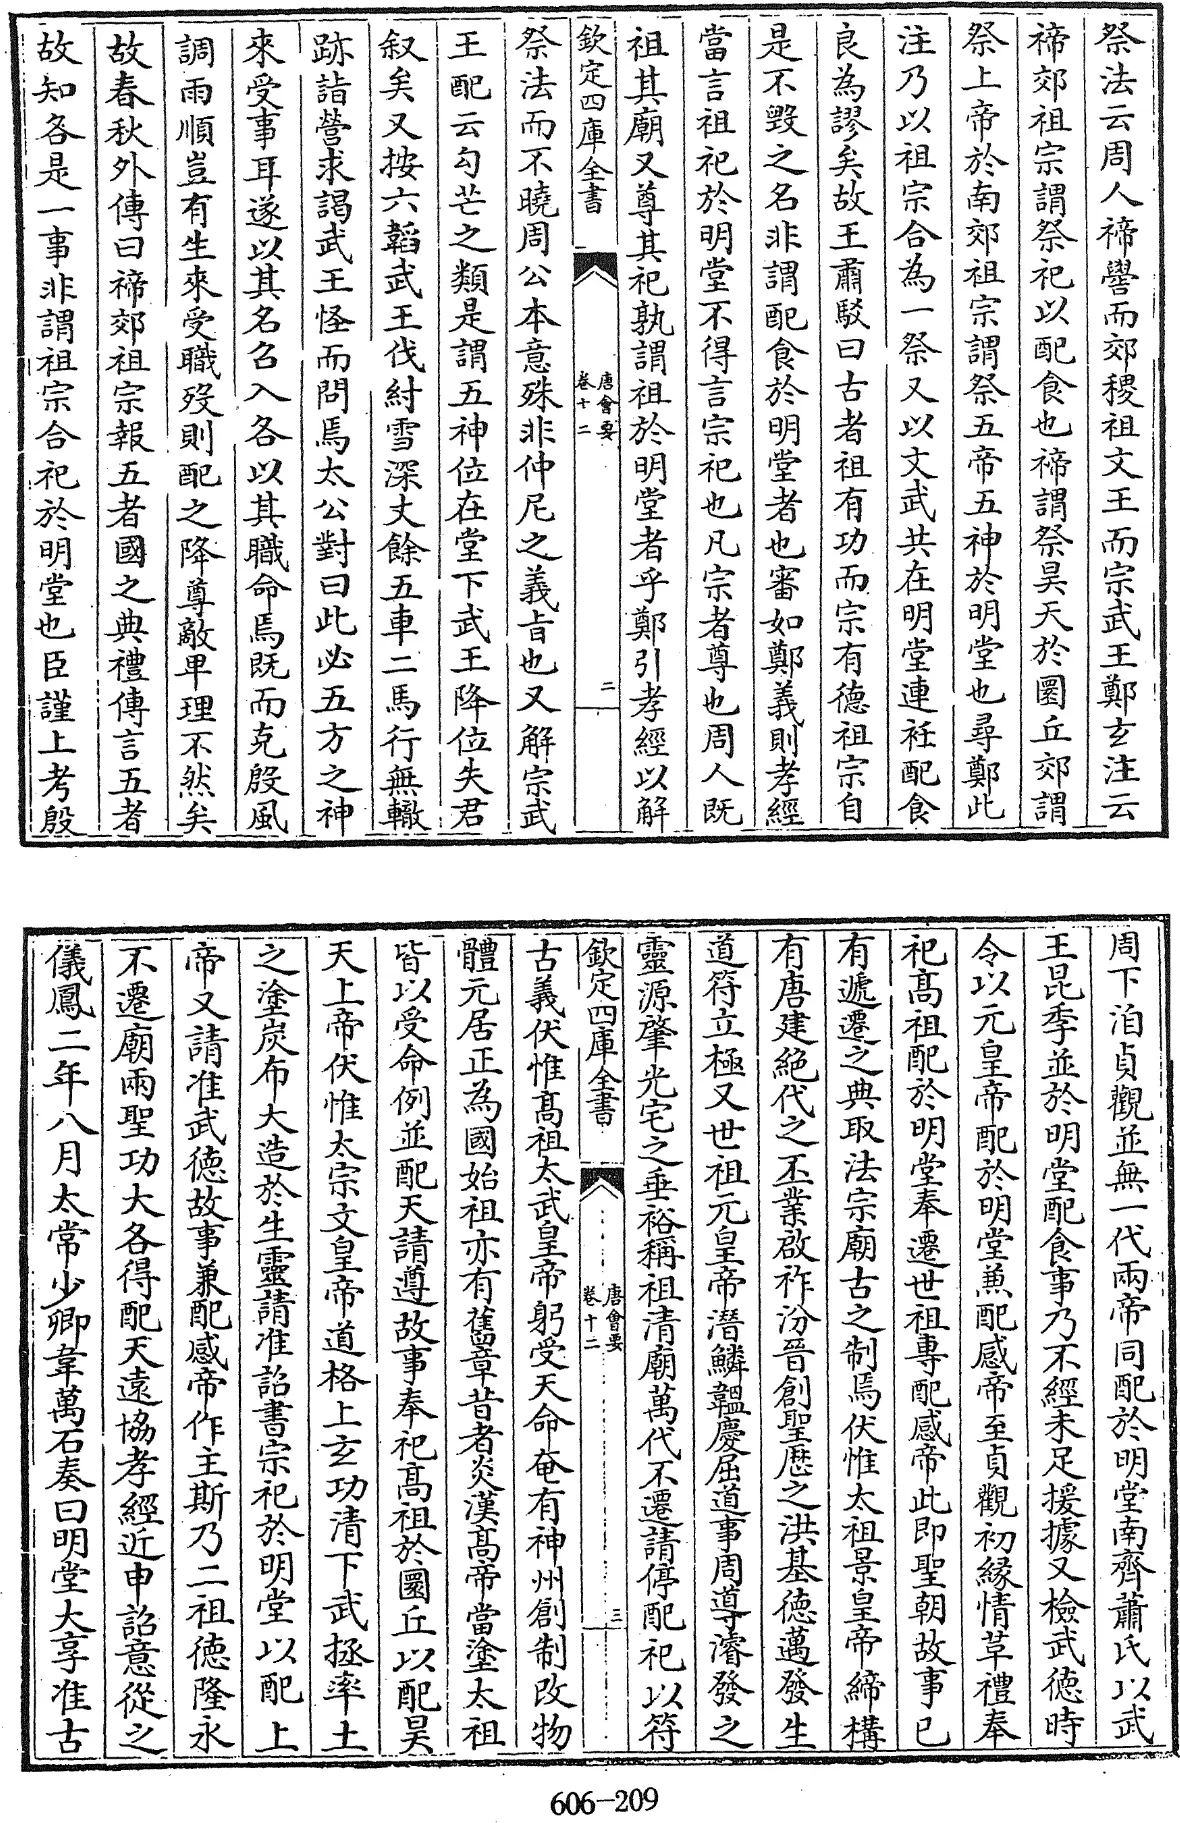 祭法云周人禘嚳而郊稷祖文王而宗武王鄭玄注云
禘郊祖宗謂祭祀以配食也禘謂祭昊天於圜丘郊謂
祭上帝於南郊祖宗謂祭五帝五神於明堂也尋鄭此
注乃以祖宗合為一祭又以文武共在明堂連袵配食
良為謬矣故王肅駁曰古者祖有功而宗有德祖宗自
是不毀之名非謂配食於明堂者也審如鄭義則孝經
當言祖祀於明堂不得言宗祀也凡宗者尊也周人既
祖其廟又尊其祀孰謂祖於明堂者乎鄭引孝經以解
欽定四庫全書
唐會要
卷十二
二
祭法而不曉周公本意殊非仲尼之義旨也又解宗武
王配云勾芒之類是謂五神位在堂下武王降位失君
叙矣又按六韜武王伐紂雪深丈餘五車二馬行無轍
跡詣營求謁武王怪而問焉太公對曰此必五方之神
來受事耳遂以其名召入各以其職命焉既而克殷風
調雨順豈有生來受職歿則配之降尊敵卑理不然矣
故春秋外傳曰禘郊祖宗報五者國之典禮傳言五者
故知各是一事非謂祖宗合祀於明堂也臣謹上考殷
周下洎貞觀並無一代兩帝同配於明堂南齊蕭氏以武
王昆季並於明堂配食事乃不經未足援據又檢武德時
令以元皇帝配於明堂兼配感帝至貞觀初緣情革禮奉
祀高祖配於明堂奉遷世祖專配感帝此即聖朝故事已
有遞遷之典取法宗廟古之制焉伏惟太祖景皇帝締構
有唐建絕代之丕業啟祚汾晉創聖歷之洪基德邁發生
道符立極又世祖元皇帝潛鱗韞慶屈道事周導濬發之
靈源肇光宅之垂裕稱祖清廟萬代不遷請停配祀以符
欽定四庫全書
唐會要
卷十二
三
古義伏惟高祖太武皇帝躬受天命奄有神州創制改物
體元居正為國始祖亦有舊章昔者炎漢高帝當塗太祖
皆以受命例並配天請遵故事奉祀高祖於圜丘以配昊
天上帝伏惟太宗文皇帝道格上玄功清下武拯率土
之塗炭布大造於生靈請准詔書宗祀於明堂以配上
帝又請准武德故事兼配感帝作主斯乃二祖德隆永
不遷廟兩聖功大各得配天遠協孝經近申詔意從之
儀鳳二年八月太常少卿韋萬石奏曰明堂大享准古
606-209